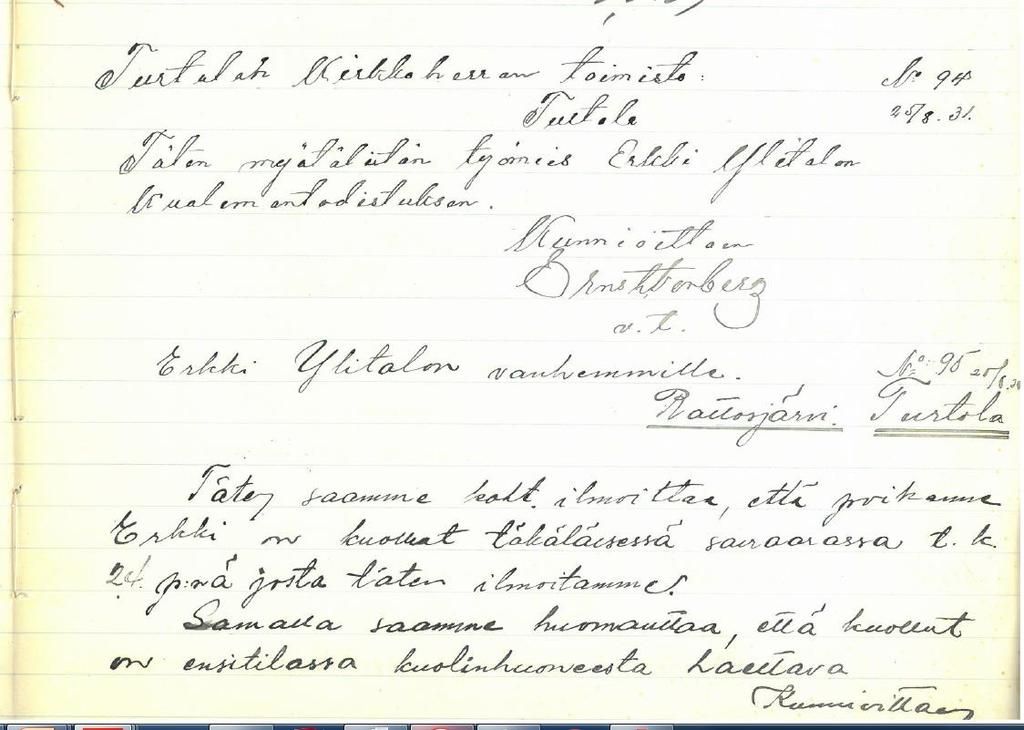 Turtolan Kirkkoherran toimisto: No 94
Turtola 25/8.31.
Täten myötäliitän työmies Erkki Ylitalon
Kualemantodistuksen.
Kunnioittaen
v.t.
Erkki Ylitalon vanhemmille. No 95
Rattosjärvi. Turtola
Täten saamme koht. ilmoittaa, että poikanne
Erkki on kuollut täkäläisessä sairaarassa t.k.
24. p:nä josta täten ilmoitamme.
Samalla saamme huomauttaa, että kuollut
on ensitilassa kuolinhuoneesta haettava
Kunnioittaen